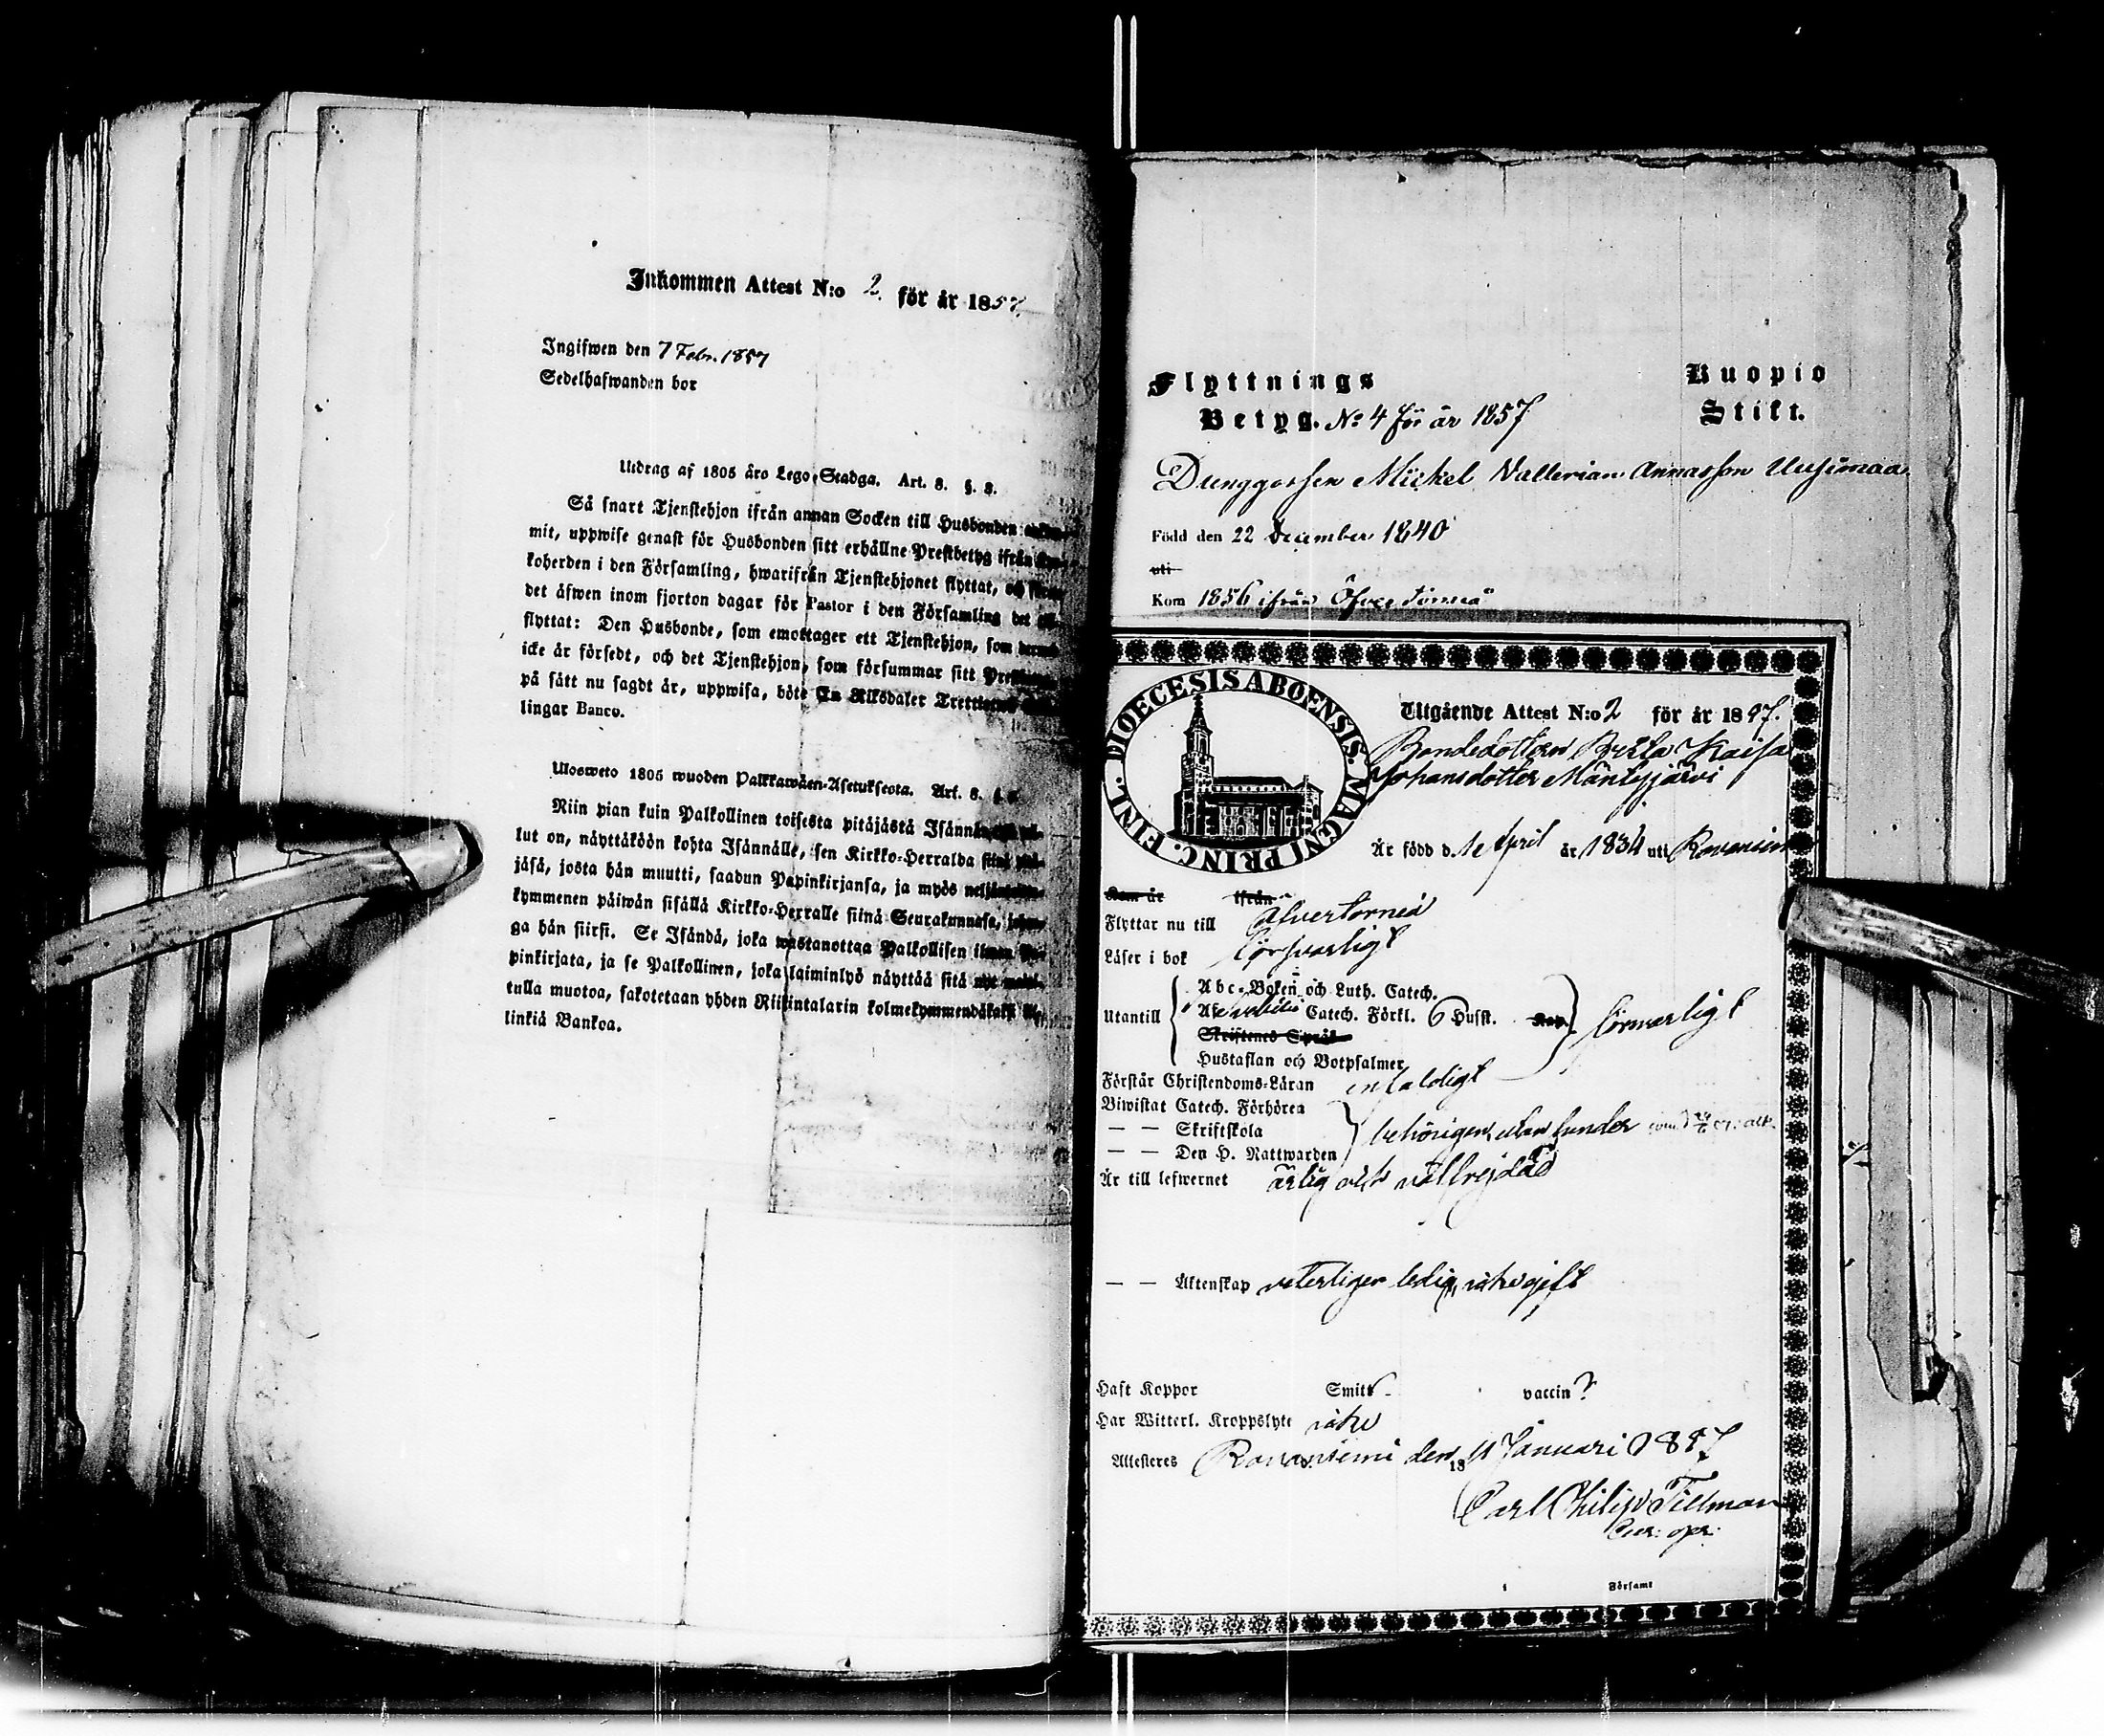 Inkommen Attest N:o 2. för år 1857.
Ingifwen den 7 Febr. 1857
Sedelhafwanden bor
Utdrag af 1805 års Lego-Stadga. Art. 8. §. 8.
Så snart Tjenstehjon ifrån annan Socken till Husbonden
mit, uppwise genast för Husbonden sitt erhållne Prestbetyg ifrån
koherden i den Församling, hwarifrån Tjenstehjonet flyttat, och
det äfwen inom fjorton dagar för Pastor i den Församling det
flyttat: Den Husbonde, som emottager ett Tjenstehjon, som
icke är försedt, och det Tjenstehjon, som försummar sitt
på sätt nu sagdt är, uppwisa, böte En Riksdaler Trettiotvå
lingar Banco.
Ulosweto 1805 wuoden Palkkawäen-Asetuksesta. Art. 8.
Niin pian kuin Palkollinen toisesta pitäjästä
lut on, näyttäköön kohta Isännälle, sen Kirkko-Herralda siinä
jäsä, josta hän muutti, saadun Papinkirjansa, ja myös
kymmenen päiwän sisällä Kirkko-Herralle siinä Seurakunnasa,
ga hän siirsi. Se Isändä, joka wastanottaa Palkollisen ilman
pinkirjata, ja se Palkollinen, joka laiminlyö näyttää sitä nyt
tulla muotoa, sakotetaan yhden Riikintalarin kolmekymmendäkaksi
linkiä Bankoa.
Flyttnings Kuopio
Betyg. No 4 för år 1857 Stift.
Drenggossen Mickel Vallerian Annasson Uusimaa
Född den 22 December 1840
uti
Kom 1856 ifrån Öfver Torneå
DIOECESIS ABOENSIS. MAGNI PRINC. FINL.
Utgående Attest N:o 2 för år 1857.
Bondedottern Brita Kaisa
Johansdotter Mäntyjärvi
Är född d. 1 April år 1834 uti Rovaniemi
Kom år ifrån
Flyttar nu till Öfvertorneå
Läser i bok försvarligt
Abc-Boken och Luth. Catech.
Utantill Catech. Förkl. 6 Husst. försvarligt
Skriftenes Språk
Hustaflan och Botpsalmer
Förstår Christendoms-Läran enfaldigt
Biwistat Catech. Förhören
— — Skriftskola behörigen, utan hinder
— — Den H. Nattwarden
Är till lefwernet ärlig och välfrejdad
— — Äktenskap veterligen ledig, icke gift
Haft Koppor Smitt vaccin ?
Har Witterl. Kroppslyte icke
Attesteres Rovaniemi den 11 Januari 1857
18
Carl Philip Tillman
Församl